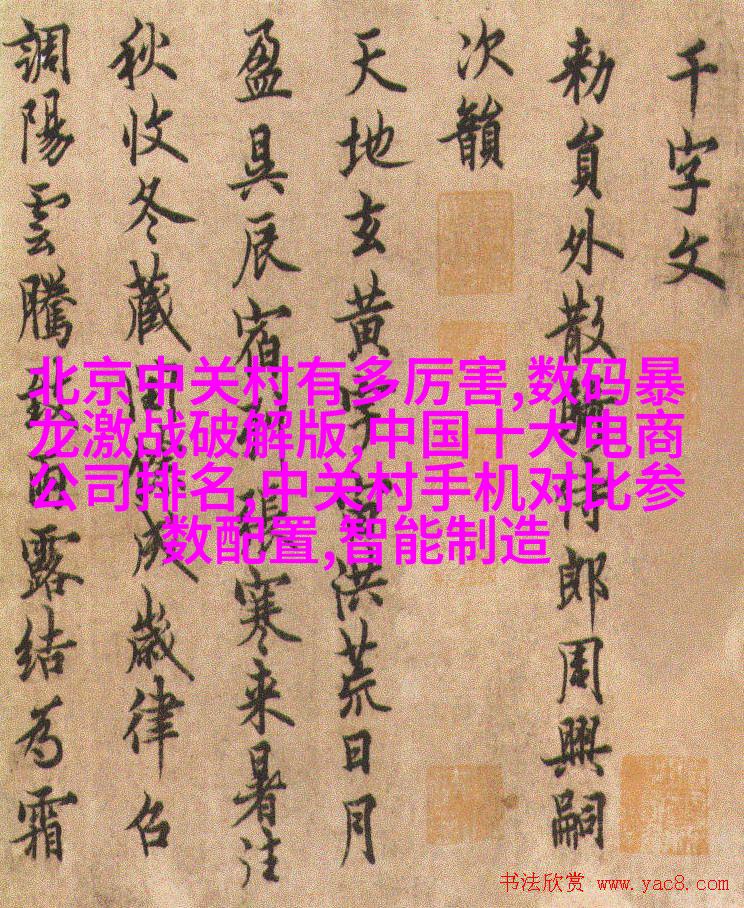 千字文
勅員外散騎侍郎周興嗣
次韻
天地玄黄宇宙洪荒日月
盈昃辰宿列張寒来暑往
秋收冬藏閏餘成歲律召
調陽雲騰致雨露結為霜
北京中关村有多厉害,数码暴
龙激战破解版,中国十大电商
公司排名,中关村手机对比参
数配置,智能制造
书法欣赏 www.yac8.com